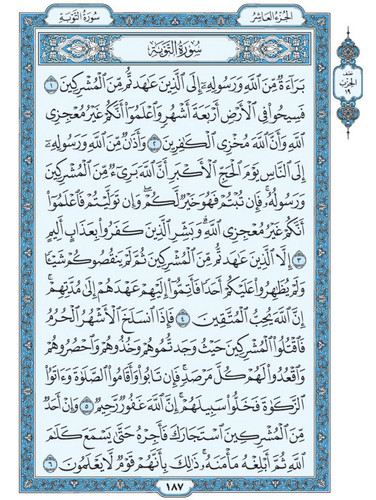 الجزء العاشر
سورة التوبة
نصف
الحزب
١٩
سورة التوبة
بَرَآءَةٌ مِّنَ ٱللَّهِ وَرَسُولِهِۦٓ إِلَى ٱلَّذِينَ عَٰهَدتُّم مِّنَ ٱلْمُشْرِكِينَ ١
فَسِيحُوا۟ فِى ٱلْأَرْضِ أَرْبَعَةَ أَشْهُرٍ وَٱعْلَمُوٓا۟ أَنَّكُمْ غَيْرُ مُعْجِزِى
ٱللَّهِ وَأَنَّ ٱللَّهَ مُخْزِى ٱلْكَٰفِرِينَ ٢ وَأَذَٰنٌ مِّنَ ٱللَّهِ وَرَسُولِهِۦٓ
إِلَى ٱلنَّاسِ يَوْمَ ٱلْحَجِّ ٱلْأَكْبَرِ أَنَّ ٱللَّهَ بَرِىٓءٌ مِّنَ ٱلْمُشْرِكِينَ
وَرَسُولُهُۥ فَإِن تُبْتُمْ فَهُوَ خَيْرٌ لَّكُمْ وَإِن تَوَلَّيْتُمْ فَٱعْلَمُوٓا۟
أَنَّكُمْ غَيْرُ مُعْجِزِى ٱللَّهِ وَبَشِّرِ ٱلَّذِينَ كَفَرُوا۟ بِعَذَابٍ أَلِيمٍ
٣ إِلَّا ٱلَّذِينَ عَٰهَدتُّم مِّنَ ٱلْمُشْرِكِينَ ثُمَّ لَمْ يَنقُصُوكُمْ شَيْـًٔا
وَلَمْ يُظَٰهِرُوا۟ عَلَيْكُمْ أَحَدًا فَأَتِمُّوٓا۟ إِلَيْهِمْ عَهْدَهُمْ إِلَىٰ مُدَّتِهِمْ
إِنَّ ٱللَّهَ يُحِبُّ ٱلْمُتَّقِينَ ٤ فَإِذَا ٱنسَلَخَ ٱلْأَشْهُرُ ٱلْحُرُمُ
فَٱقْتُلُوا۟ ٱلْمُشْرِكِينَ حَيْثُ وَجَدتُّمُوهُمْ وَخُذُوهُمْ وَٱحْصُرُوهُمْ
وَٱقْعُدُوا۟ لَهُمْ كُلَّ مَرْصَدٍ فَإِن تَابُوا۟ وَأَقَامُوا۟ ٱلصَّلَوٰةَ وَءَاتَوُا۟
ٱلزَّكَوٰةَ فَخَلُّوا۟ سَبِيلَهُمْ إِنَّ ٱللَّهَ غَفُورٌ رَّحِيمٌ ٥ وَإِنْ أَحَدٌ
مِّنَ ٱلْمُشْرِكِينَ ٱسْتَجَارَكَ فَأَجِرْهُ حَتَّىٰ يَسْمَعَ كَلَٰمَ
ٱللَّهِ ثُمَّ أَبْلِغْهُ مَأْمَنَهُۥ ذَٰلِكَ بِأَنَّهُمْ قَوْمٌ لَّا يَعْلَمُونَ ٦
١٨٧